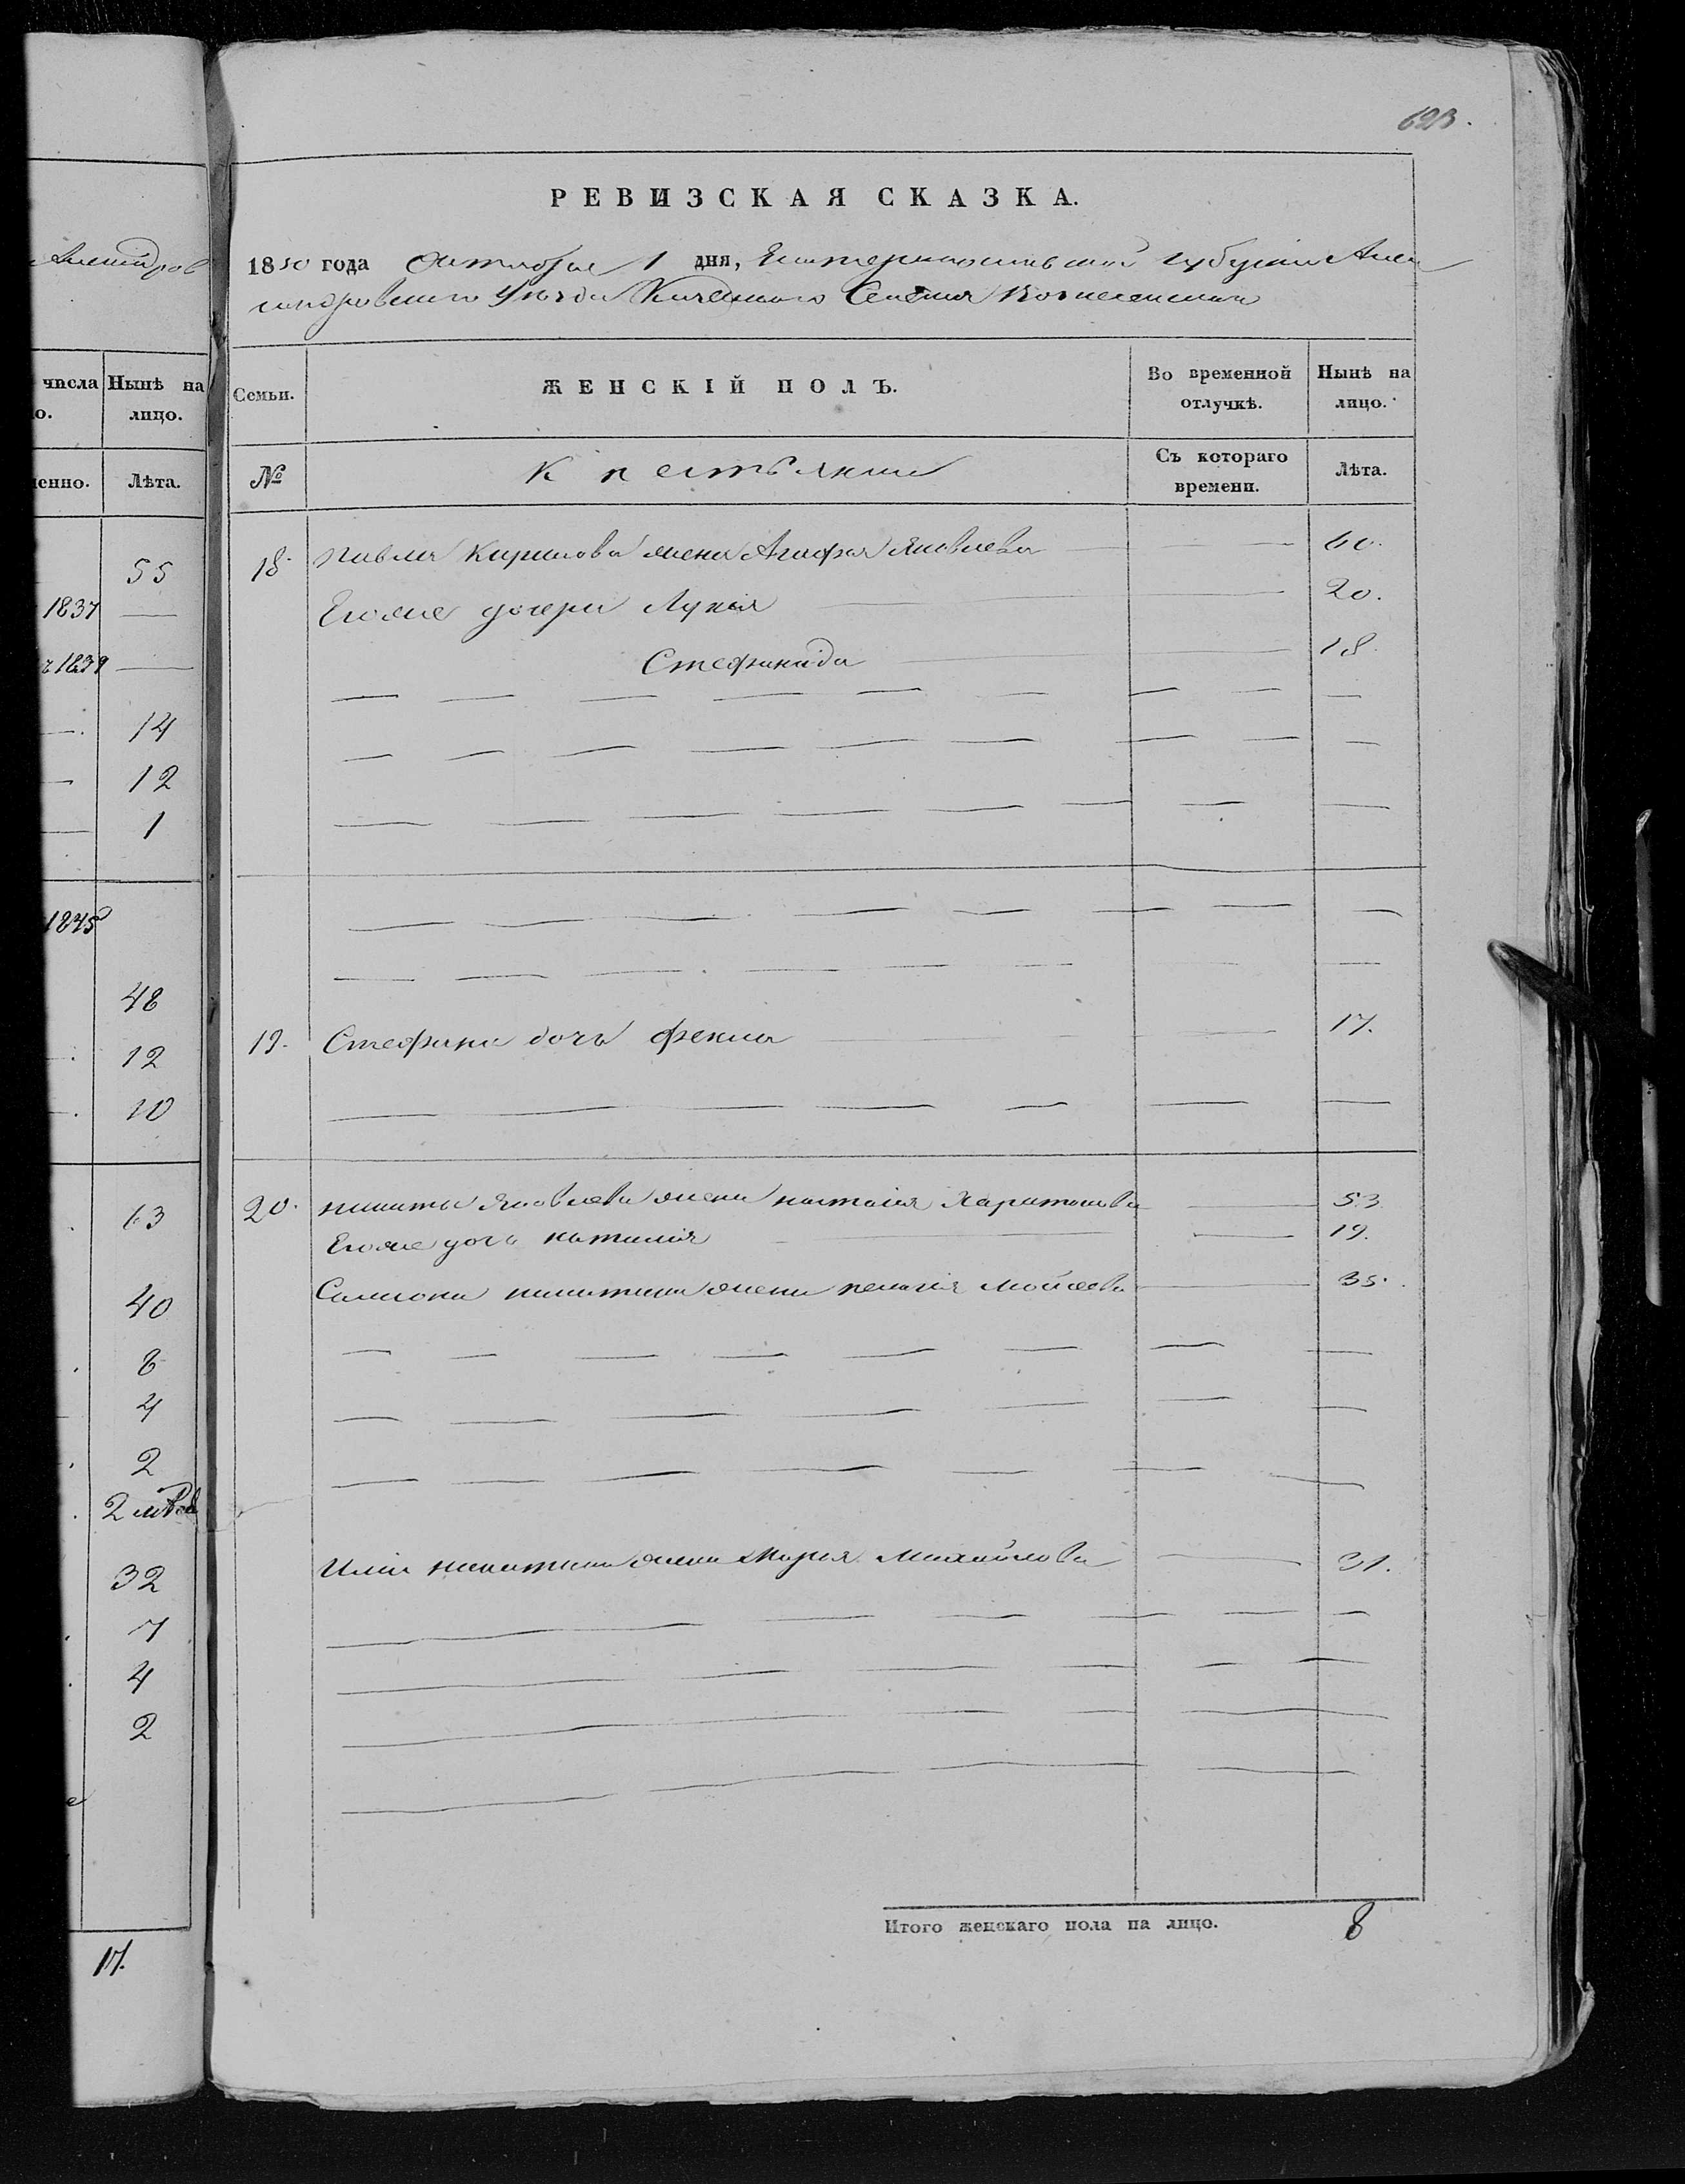 623.
РЕВИЗСКАЯ СКАЗКА.
1850 года Октября 1 дня, Екатеринославской губернии Алек
сандровского Уезда Казенного Селения Вознесенки
Семьи.
ЖЕНСКІЙ ПОЛЪ.
Во временной отлучкѣ.
Нынѣ на лицо.
№
Крестьянки
Съ котораго времени.
Лѣта.
18. Павла Кирилова жена Агафья Яковлева 60.
Егоже дочери Лукія 20.
Стефанида 18.
19. Стефана дочь Фекла 17.
20. Никиты Яковлева жена Наталія Харитонова 53
Егоже дочь Наталія 19.
Никитина жена Пелагія Мойсеева 35.
Ильи Никитина жена Марья Михайлова 31.
Итого женскаго пола на лицо. 8
числа
Нынѣ на лицо.
Лѣта.
55
1837
1839
14
12
1
1845
48
12
10
63
40
8
4
2
2
32
7
4
2
17.